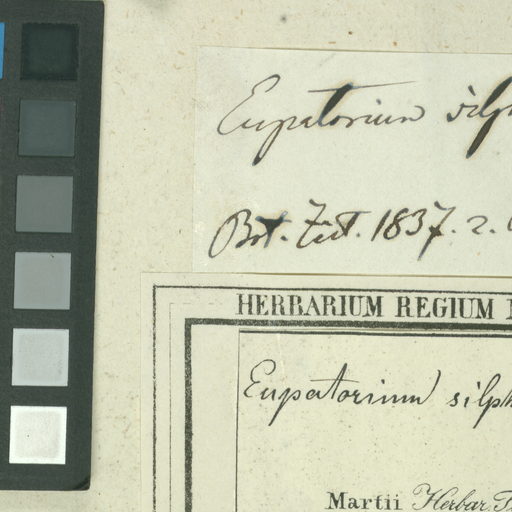 Eupatorium silph
Bot. Zeit. 1837. 2.
HERBARIUM REGIUM
Eupatorium silph
Martii Herbar.